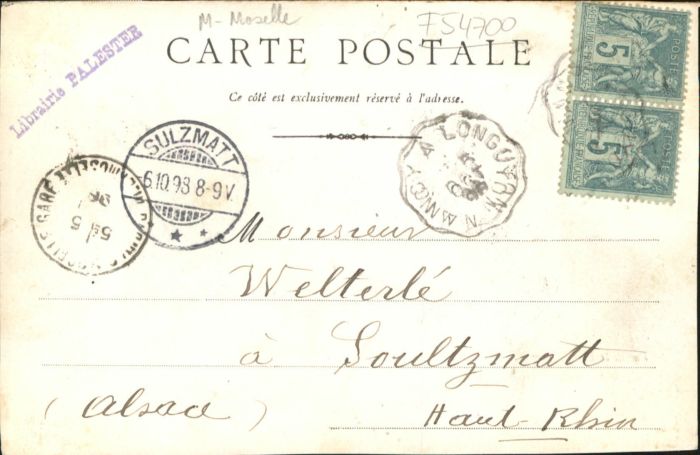 M-Moselle
F54700
Librairie PALESTER
CARTE POSTALE
Ce côté est exclusivement réservé à l'adresse.
POSTE
5
POSTE
5
LONGUYON A NANCY
SULZMATT
6.10.98 8-9V.
GARE
5
Monsieur
Welterlé
à Soultzmatt
(Alsace) Haut-Rhin